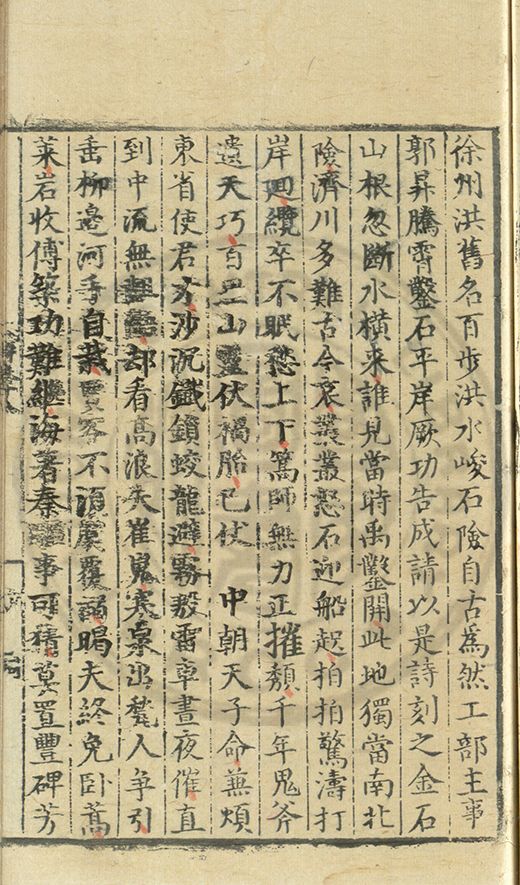 徐州洪舊名百步洪水峻石險自古為然工部主事
郭昇騰霄鑿石平岸厥功告成請以是詩刻之金石
山根忽斷水橫来誰見當時禹鑿開此地獨當南北
險濟川多難古今哀叢叢怒石迎船起拍拍驚濤打
岸廻纜卒不眠愁上下篙師無力正摧頽千年鬼斧
遺天巧百
山靈伏禍胎已仗 中朝天子命無煩
東省使君才沙沉鐵鎖蛟龍避霧
雷
晝夜催直
到中流無
却看高浪失崔嵬寒泉出甃人爭引
垂柳邊河手自栽
客不湏
覆溺暍夫終免卧蒿
萊岩收傅築功難繼海著秦
事可
莫置豐碑芳